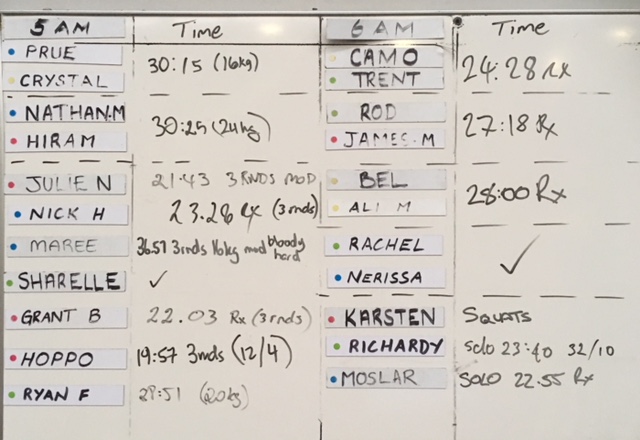 5 AM Time
PRUE
CRYSTAL
30:15 (16kg)
NATHAN.M
HIRAM
30:25 (24kg)
JULIE N 21:43 3 RNDS MOD
NICK H 23.28 Rx (3rnds)
MAREE 36.57 3rnds 16kg mod bloody hard
SHARELLE ✓
GRANT B 22.03 Rx (3rnds)
HOPPO 19:57 3rnds (12/4)
RYAN F 29:51 (20kg)
6 AM Time
CAMO
TRENT
24:28 RX
ROD
JAMES.M
27:18 Rx
BEL
ALI M
28:00 Rx
RACHEL
NERISSA
✓
KARSTEN SQUATS
RICHARDY solo 23:40 32/10
MOSLAR SOLO 22.55 Rx